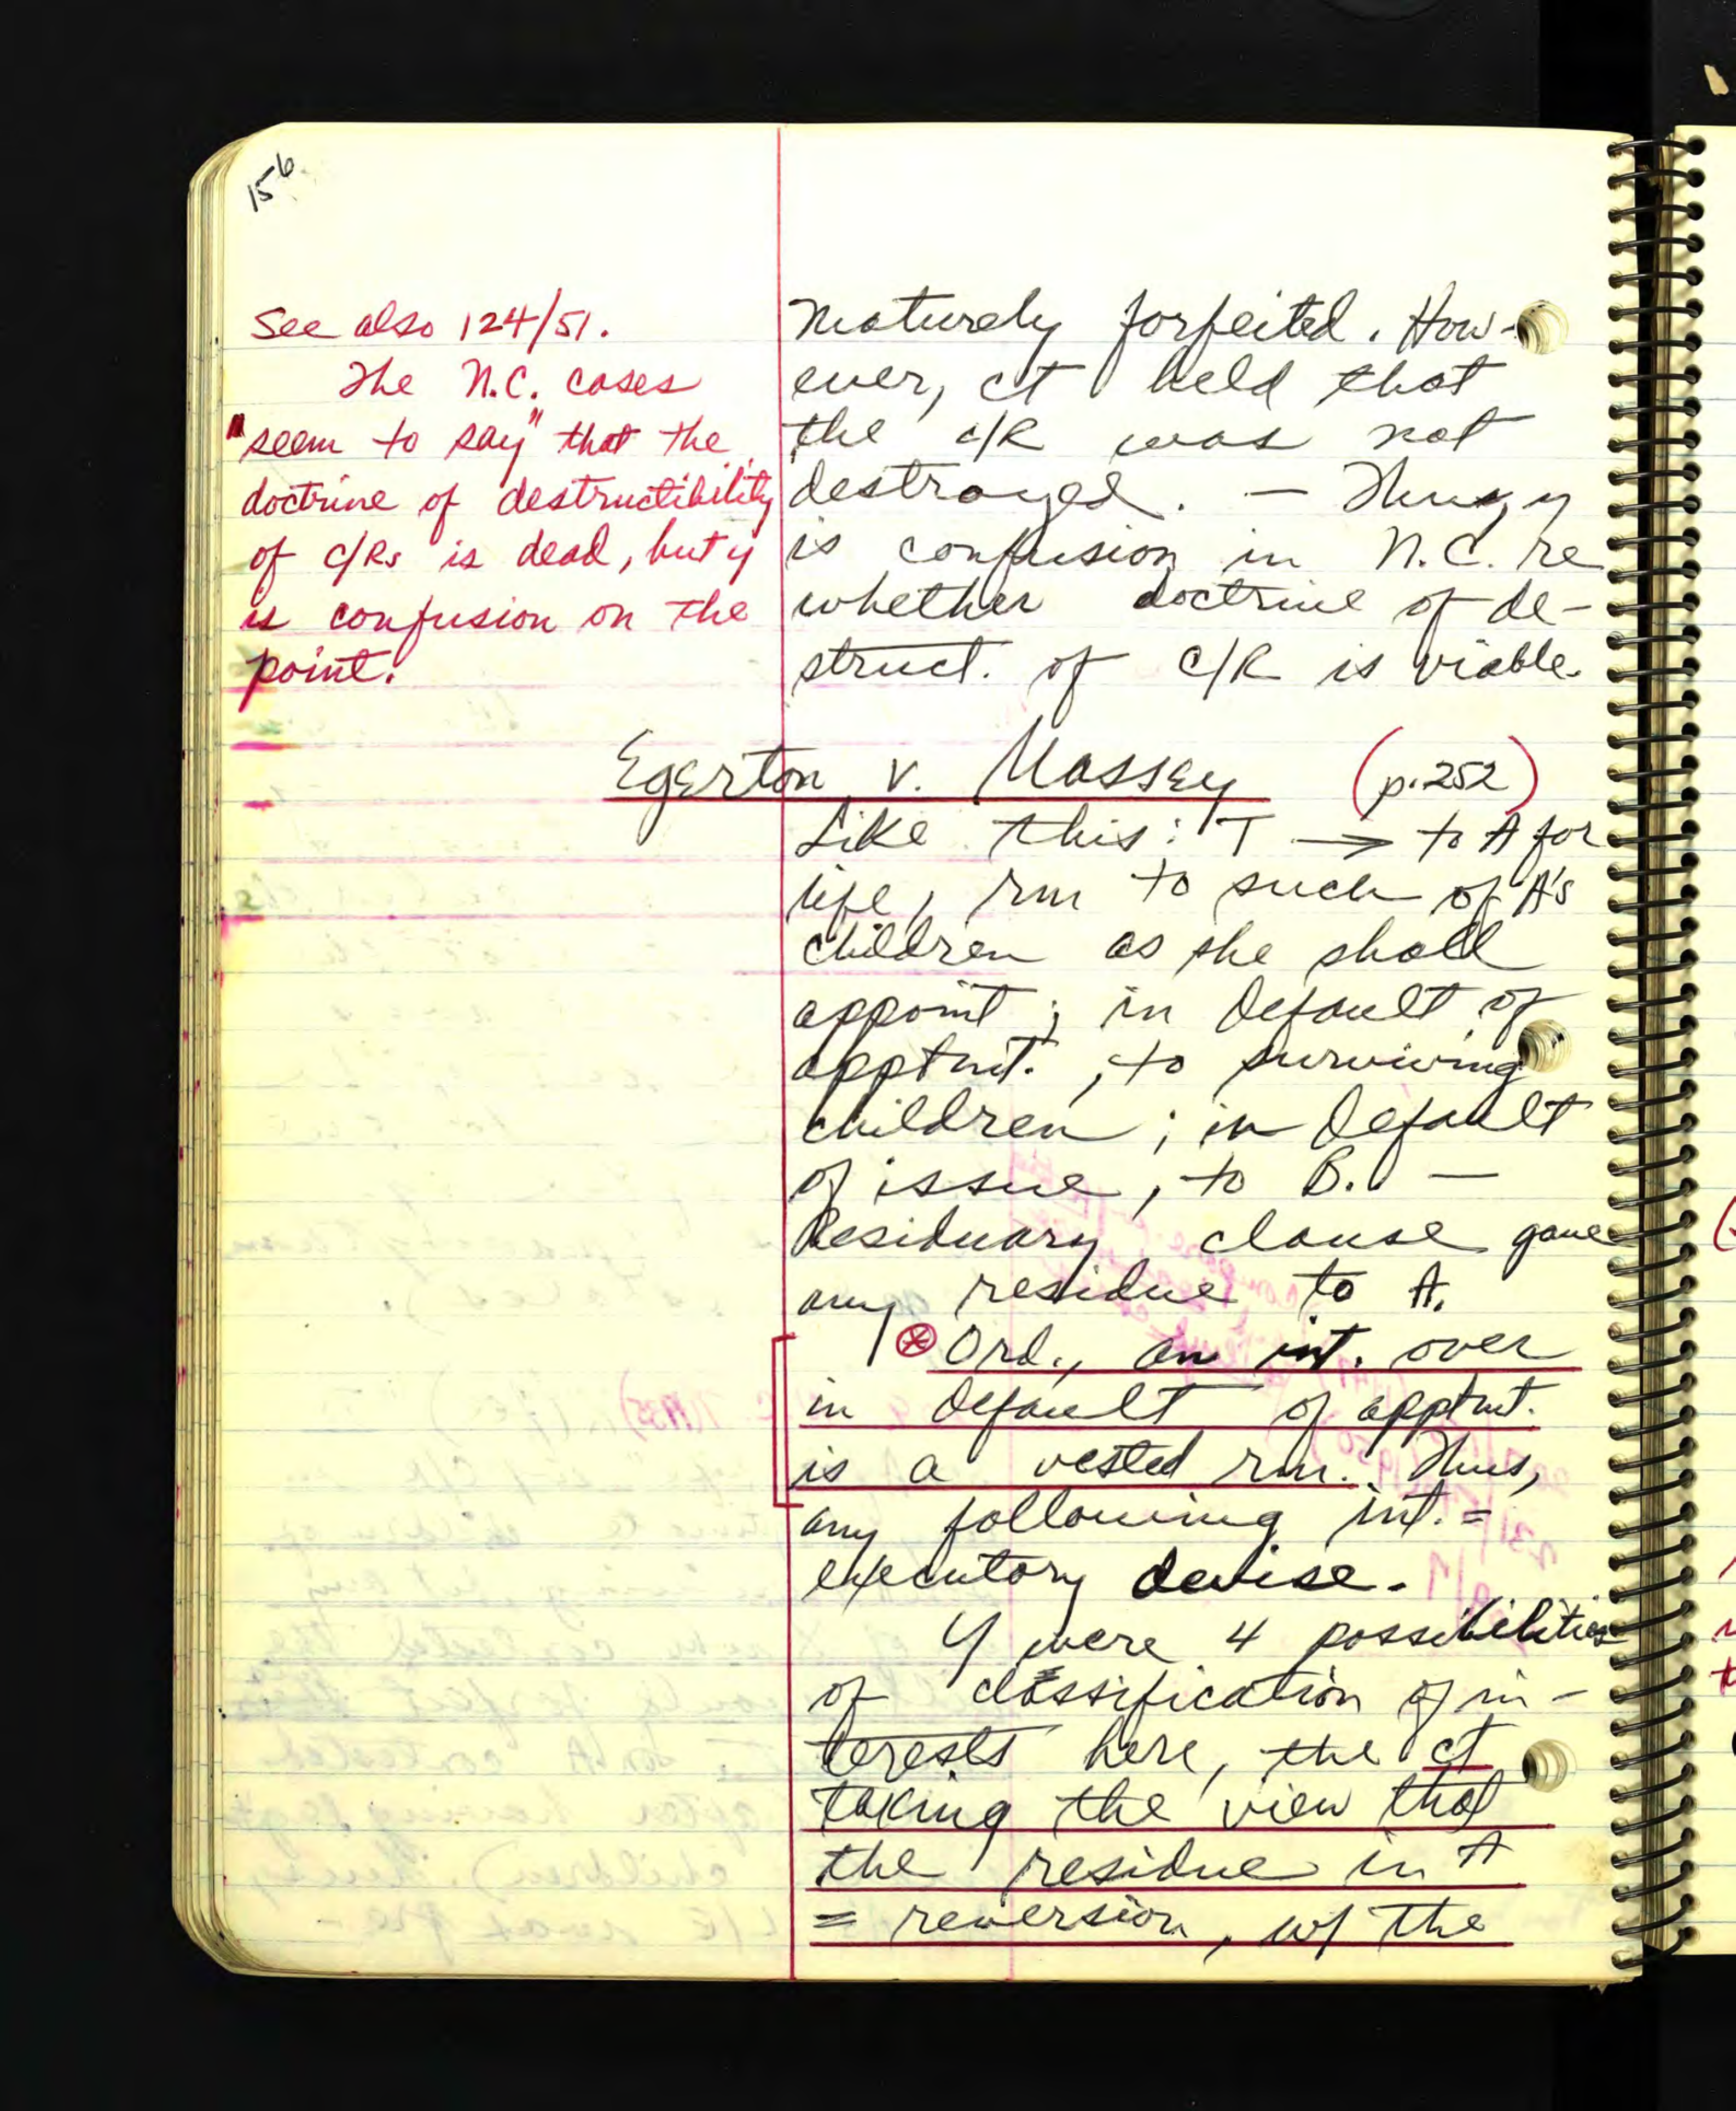 156
See also 124/51.
The N.C. cases
"seem to say" that the
doctrine of destructibility
of c/Rs is dead, but y
is confusion on the
point.
maturely forfeited. How-
ever, ct held that
the c/R was not
destroyed. — Thus, y
is confusion in N.C. re
whether doctrine of de-
struct. of c/R is viable.
Egerton v. Massey (p.252)
Like this: T → to A for
life, rm to such of A's
children as she shall
appoint; in default of
apptmt., to surviving
children; in default
of issue, to B. —
Residuary clause gave
any residue to A.
⊛ Ord., an int. over
in default of apptmt.
is a vested rm. Thus,
any following int. =
executory devise.
Y were 4 possibilities
of classification of in-
terests here, the ct
taking the view that
the residue in A
= reversion, w/ the